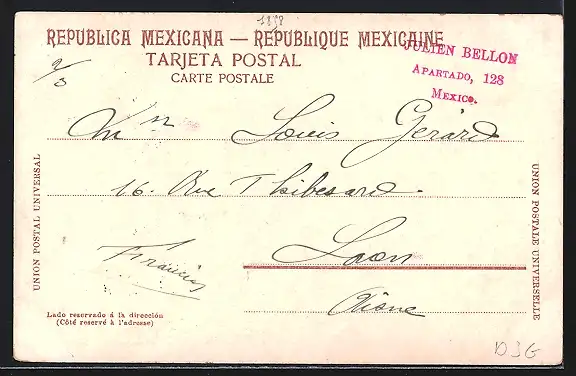 1898
REPUBLICA MEXICANA — REPUBLIQUE MEXICAINE
TARJETA POSTAL
CARTE POSTALE
JULIEN BELLON
APARTADO, 128
MEXICO.
2/3
Mr Louis Gérard
16. Rue Thibesard.
Laon
Aisne
Francia
UNION POSTAL UNIVERSAL
UNION POSTALE UNIVERSELLE
Lado reservado á la dirección
(Côté reservé à l'adresse)
DJG